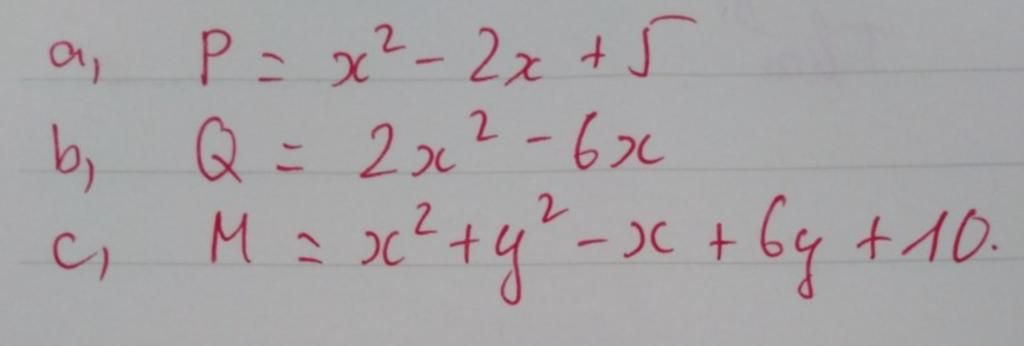 a, P = x² - 2x + 5
b, Q = 2x² - 6x
c, M = x² + y² - x + 6y + 10.